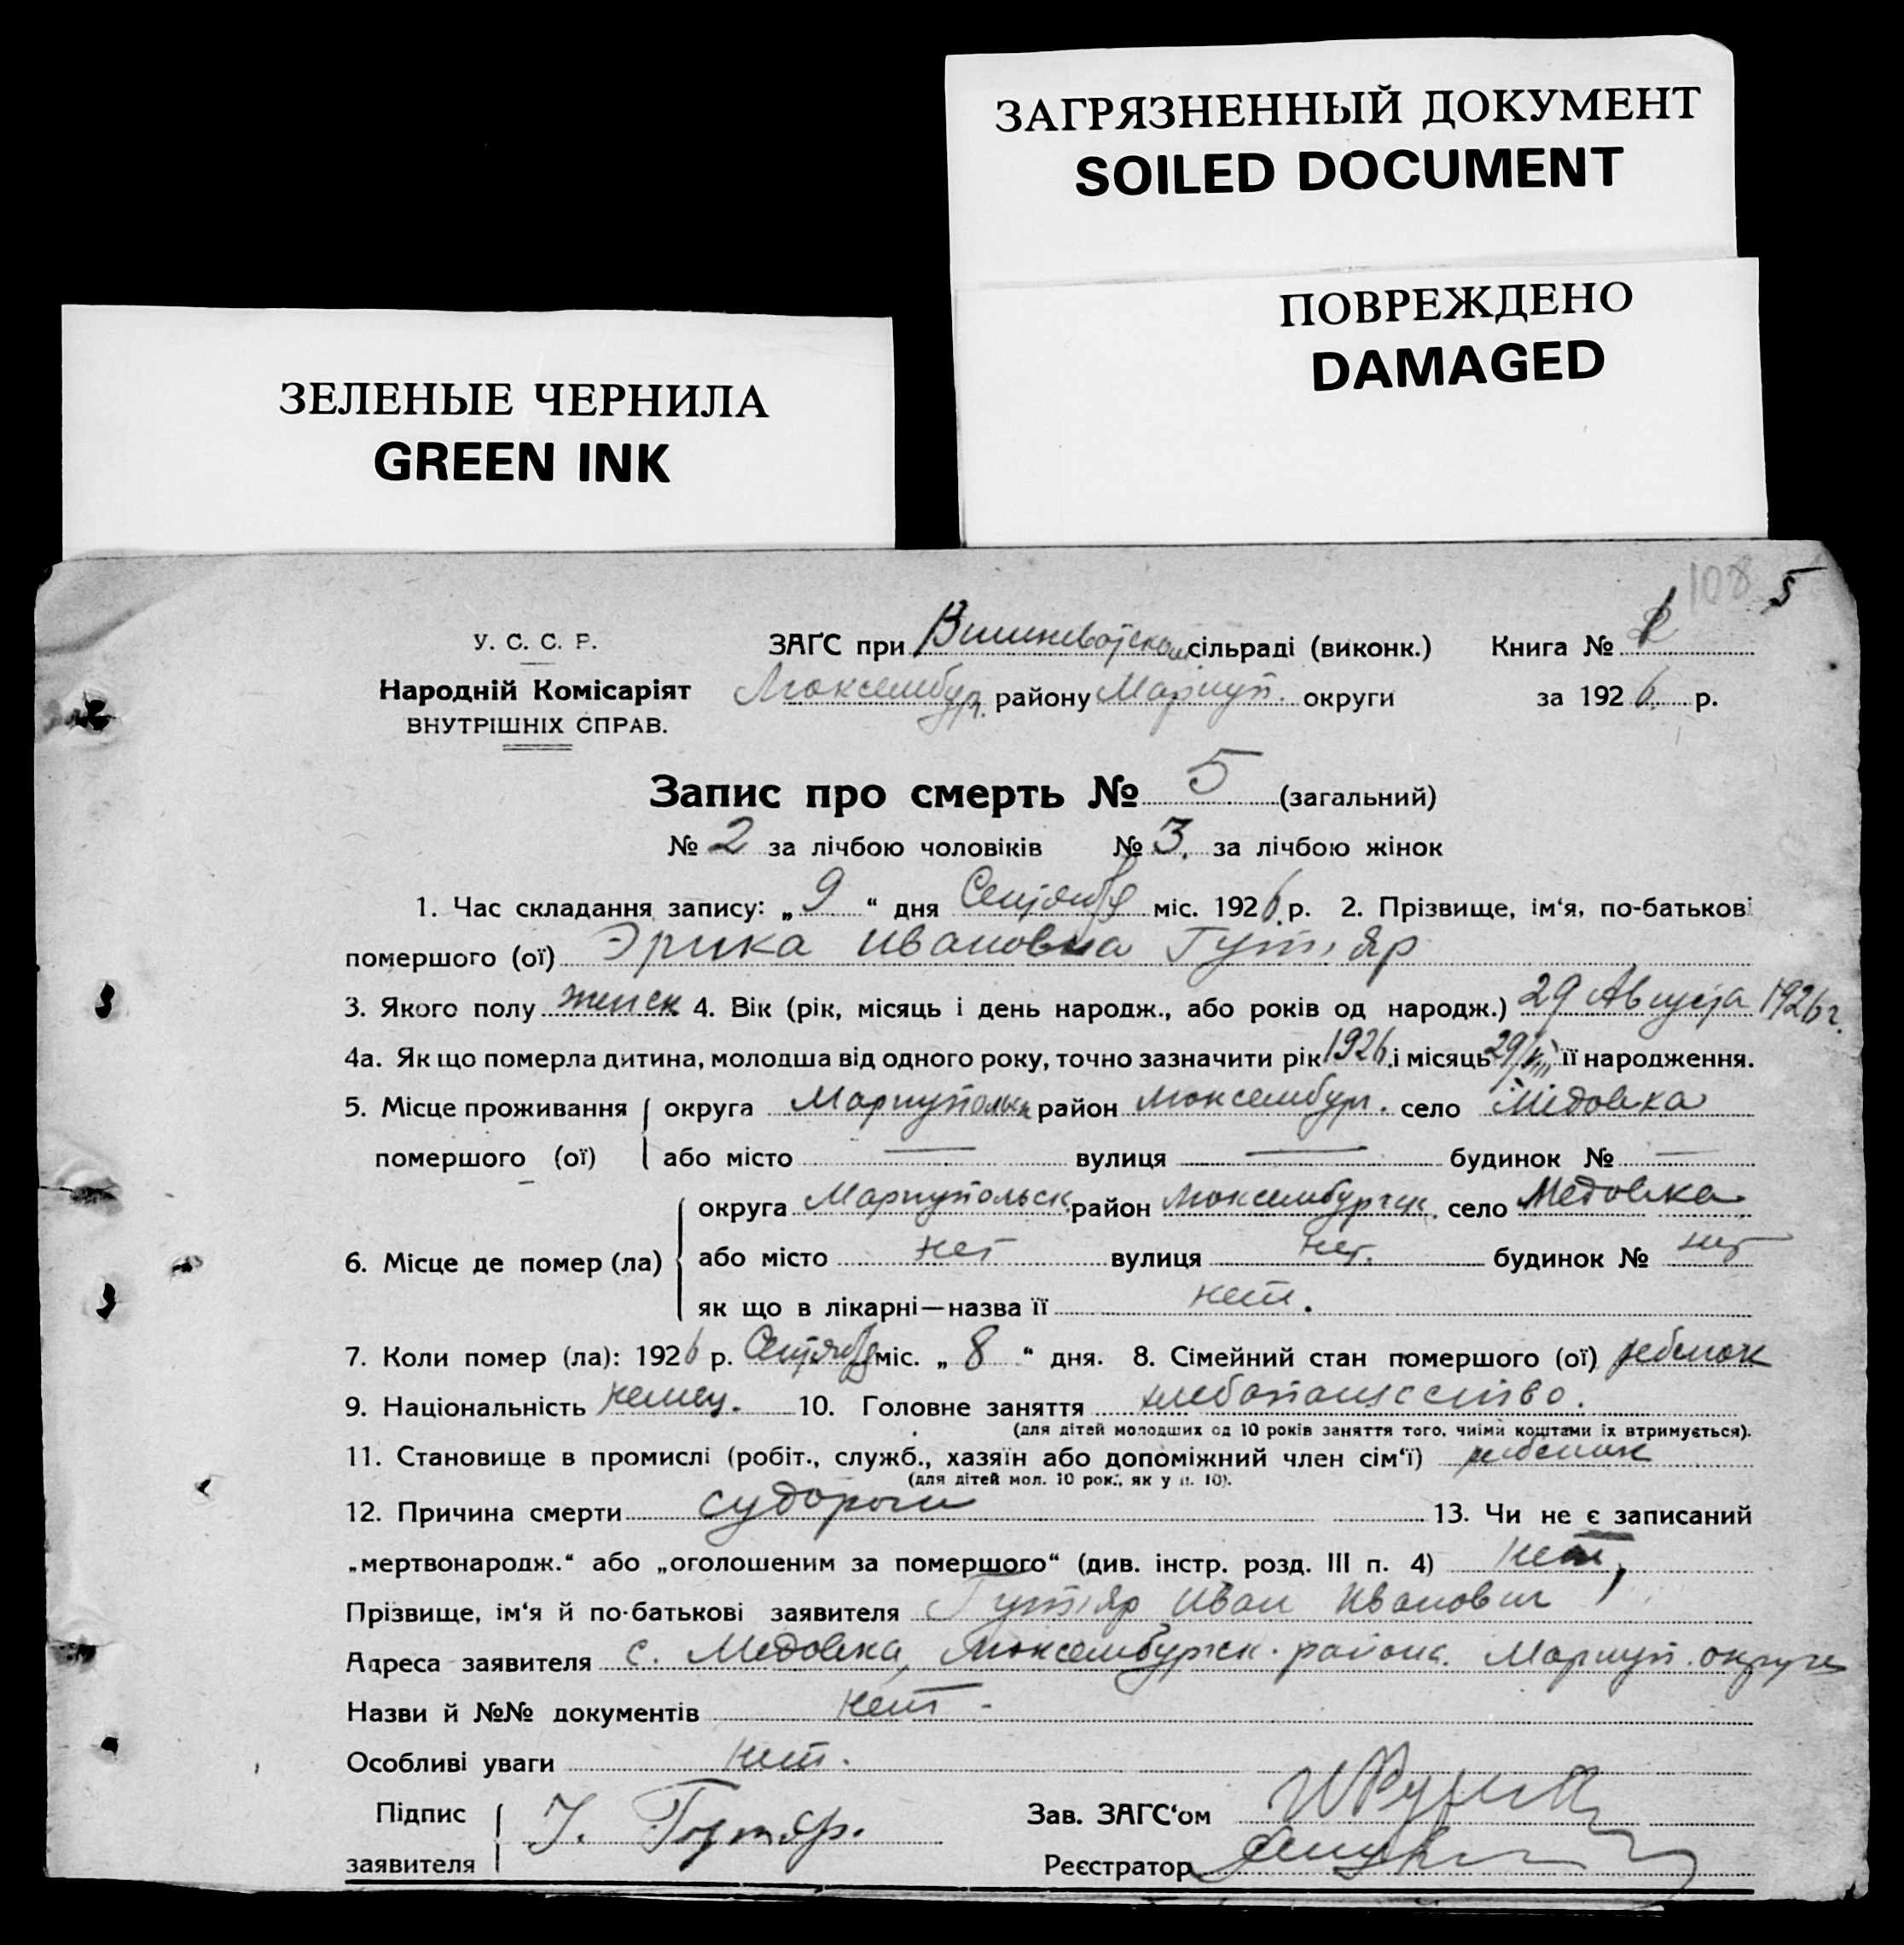 ЗАГРЯЗНЕННЫЙ ДОКУМЕНТ
SOILED DOCUMENT
ПОВРЕЖДЕНО
DAMAGED
ЗЕЛЕНЫЕ ЧЕРНИЛА
GREEN INK
108 5
У. С. С. Р.
Народній Комісаріят
ВНУТРІШНІХ СПРАВ.
ЗАҐС при сільраді (виконк.) Книга №
Люксембур. району Мариуп. округи за 1926 р.
Запис про смерть № 5 (загальний)
№ 2 за лічбою чоловіків № 3. за лічбою жінок
1. Час складання запису: „9“ дня Сентября міс. 1926 р. 2. Прізвище, ім‘я, по-батькові
помершого (ої) Эрика Ивановна Гутяр
3. Якого полу женск 4. Вік (рік, місяць і день народж., або років од народж.) 29 Августа 1926 г.
4а. Як що померла дитина, молодша від одного року, точно зазначити рік 1926 і місяць 29/VIII її народження.
5. Місце проживання округа Мариупольск район Люксембург. село Медовка
помершого (ої) або місто — вулиця — будинок № —
6. Місце де помер (ла) округа Мариупольск район Люксембургск. село Медовка
або місто нет вулиця нет. будинок № нет
як що в лікарні—назва її нет.
7. Коли помер (ла): 1926 р. Сентября міс. „8“ дня. 8. Сімейний стан помершого (ої) ребенок
9. Національність немец. 10. Головне заняття хлебопашество.
(для дітей молодших од 10 років заняття того, чиїми коштами їх втримується).
11. Становище в промислі (робіт., служб., хазяїн або допоміжний член сім‘ї) ребенок
(для дітей мол. 10 рок., як у п. 10).
12. Причина смерти судороги 13. Чи не є записаний
„мертвонародж.“ або „оголошеним за помершого“ (див. інстр. розд. III п. 4) нет,
Прізвище, ім‘я й по-батькові заявителя Гутяр Иван Иванович
Адреса заявителя с. Медовка, Люксембургск. района. Мариуп. округи
Назви й №№ документів нет -
Особливі уваги нет.
Підпис заявителя
Зав. ЗАҐС‘ом
Реєстратор